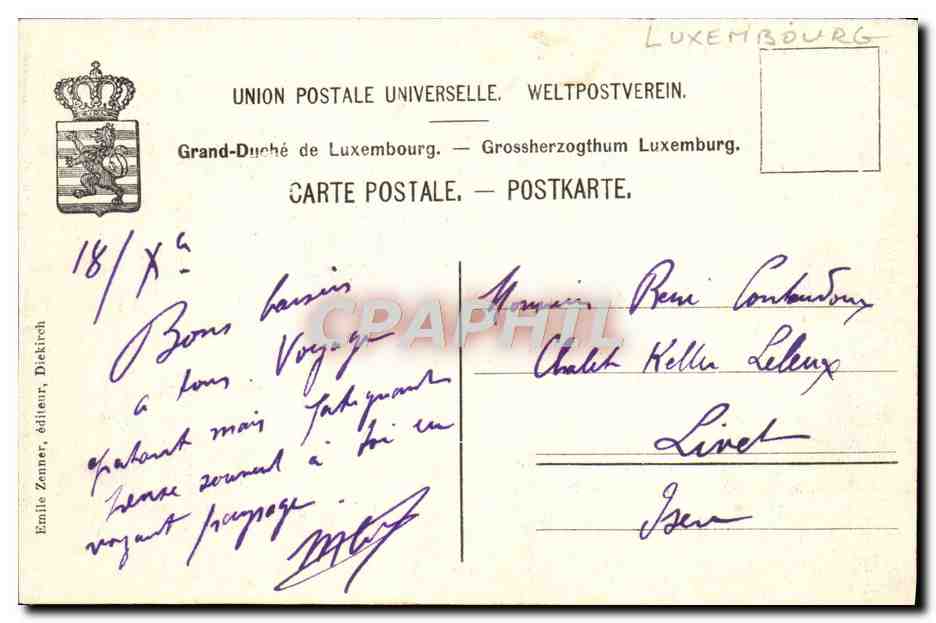 LUXEMBOURG
UNION POSTALE UNIVERSELLE. WELTPOSTVEREIN.
Grand-Duché de Luxembourg. — Grossherzogthum Luxemburg.
CARTE POSTALE. — POSTKARTE.
18/Xe
Bons baisers
a tous. Voyage
epatant mais fatiguant
Pense souvent à toi en
voyant paysage.
Monsieur René
Chalet Keller Leleux
Livet
Isère
Emile Zenner, éditeur, Diekirch
CPAPHIL